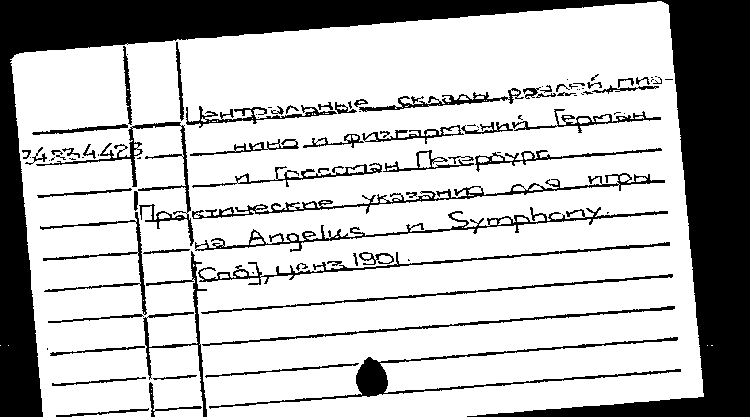 Центральные склады роялей, пиа-
34834423 нино и физгармоний Герман
и Гроссман Петербург.
Практические указания для игры
на Angelus и Symphony.
[Спб], ценз. 1901.